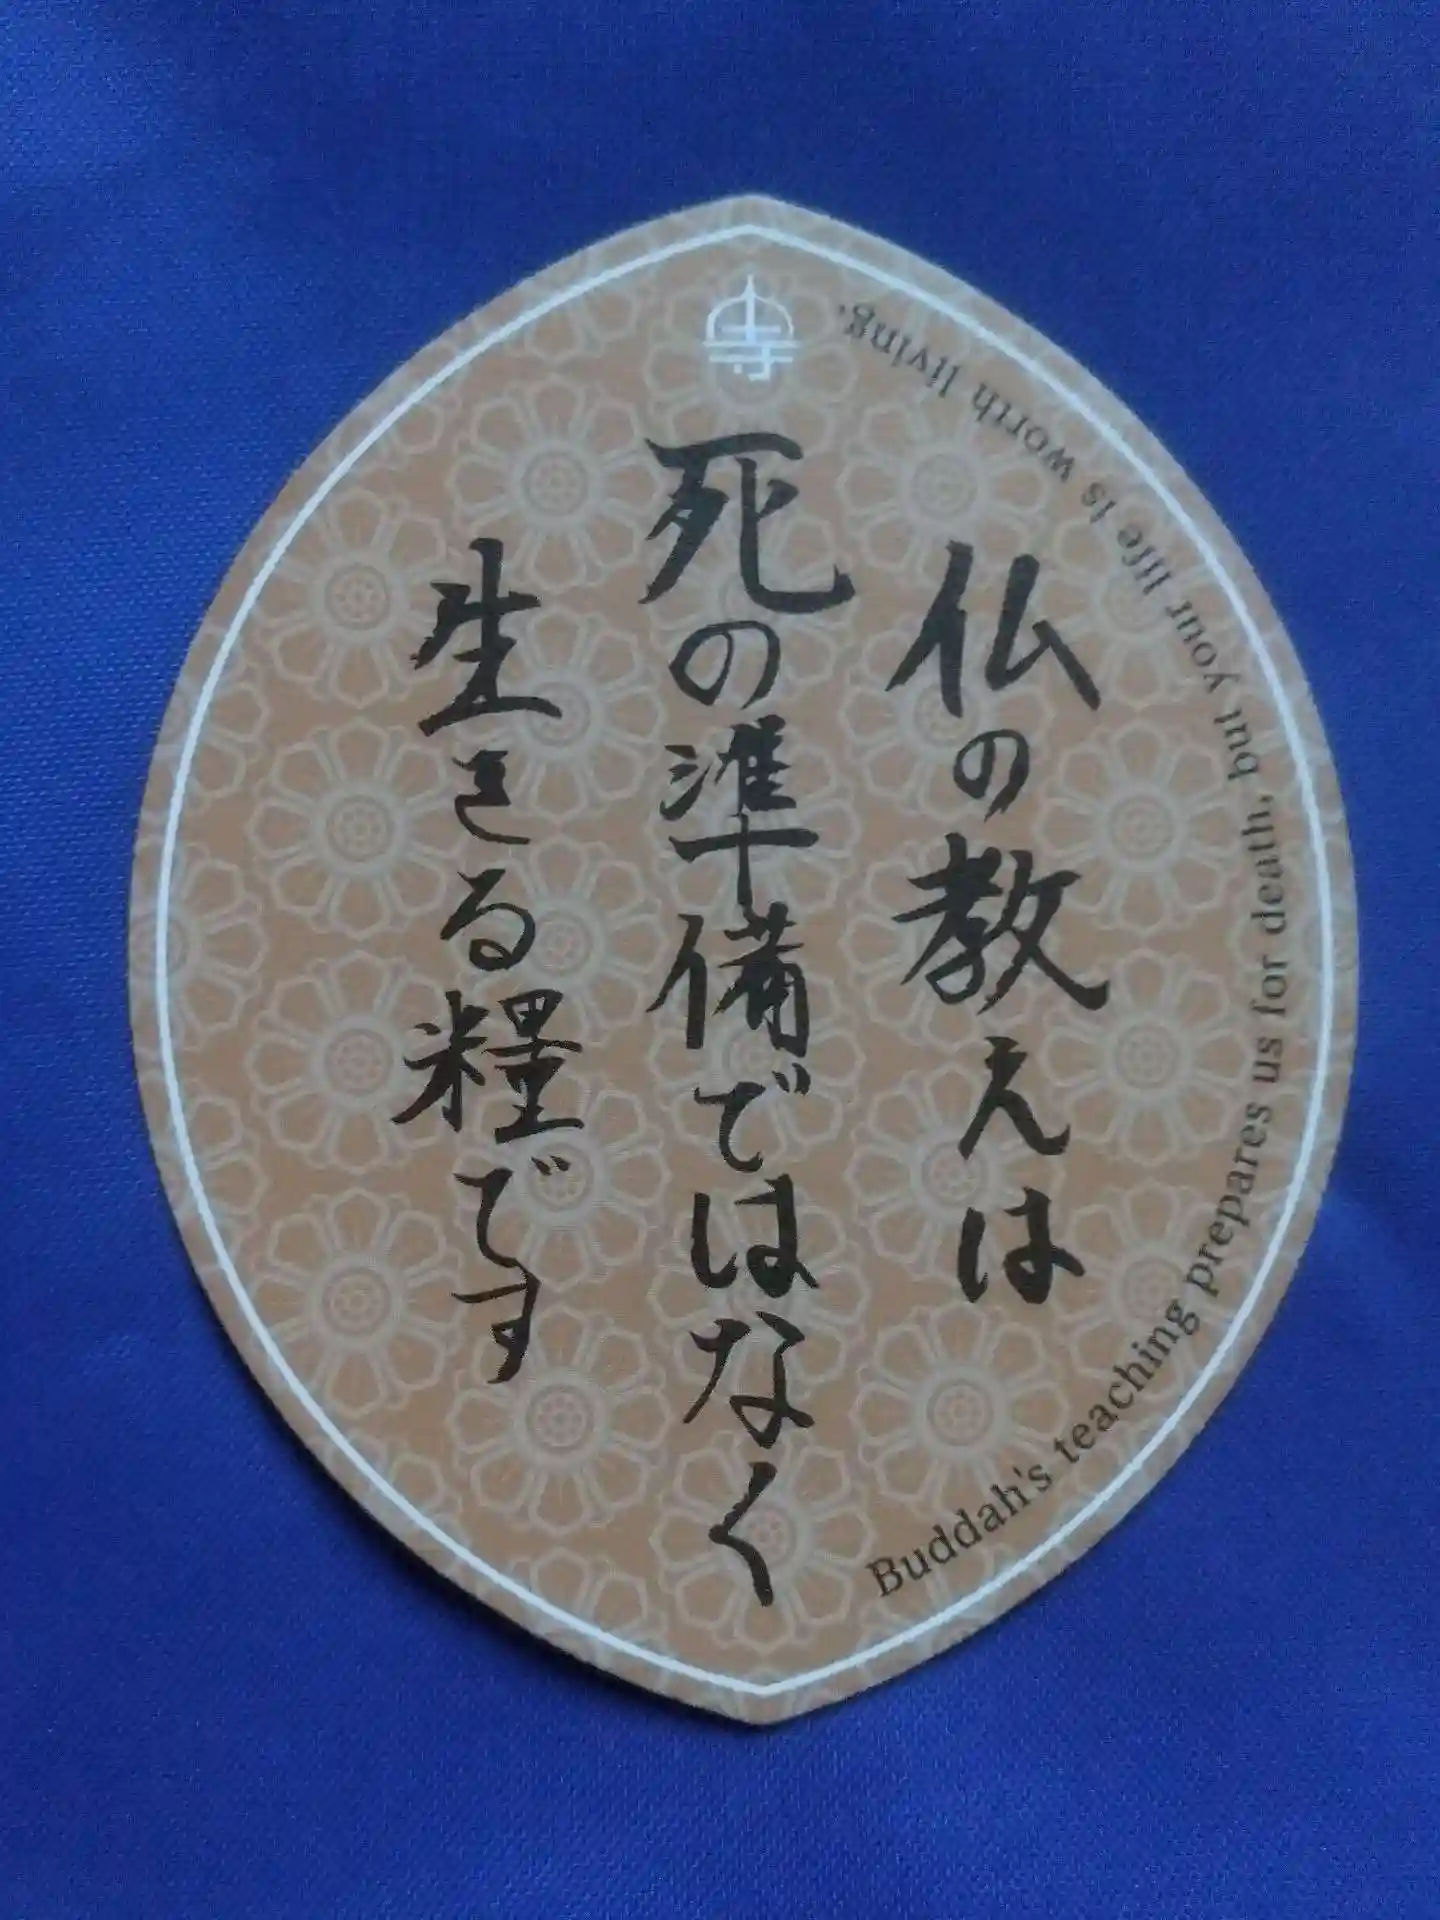 仏の教えは
死の準備ではなく
生きる糧です
Buddah's teaching prepares us for death, but your life is worth living.
寺